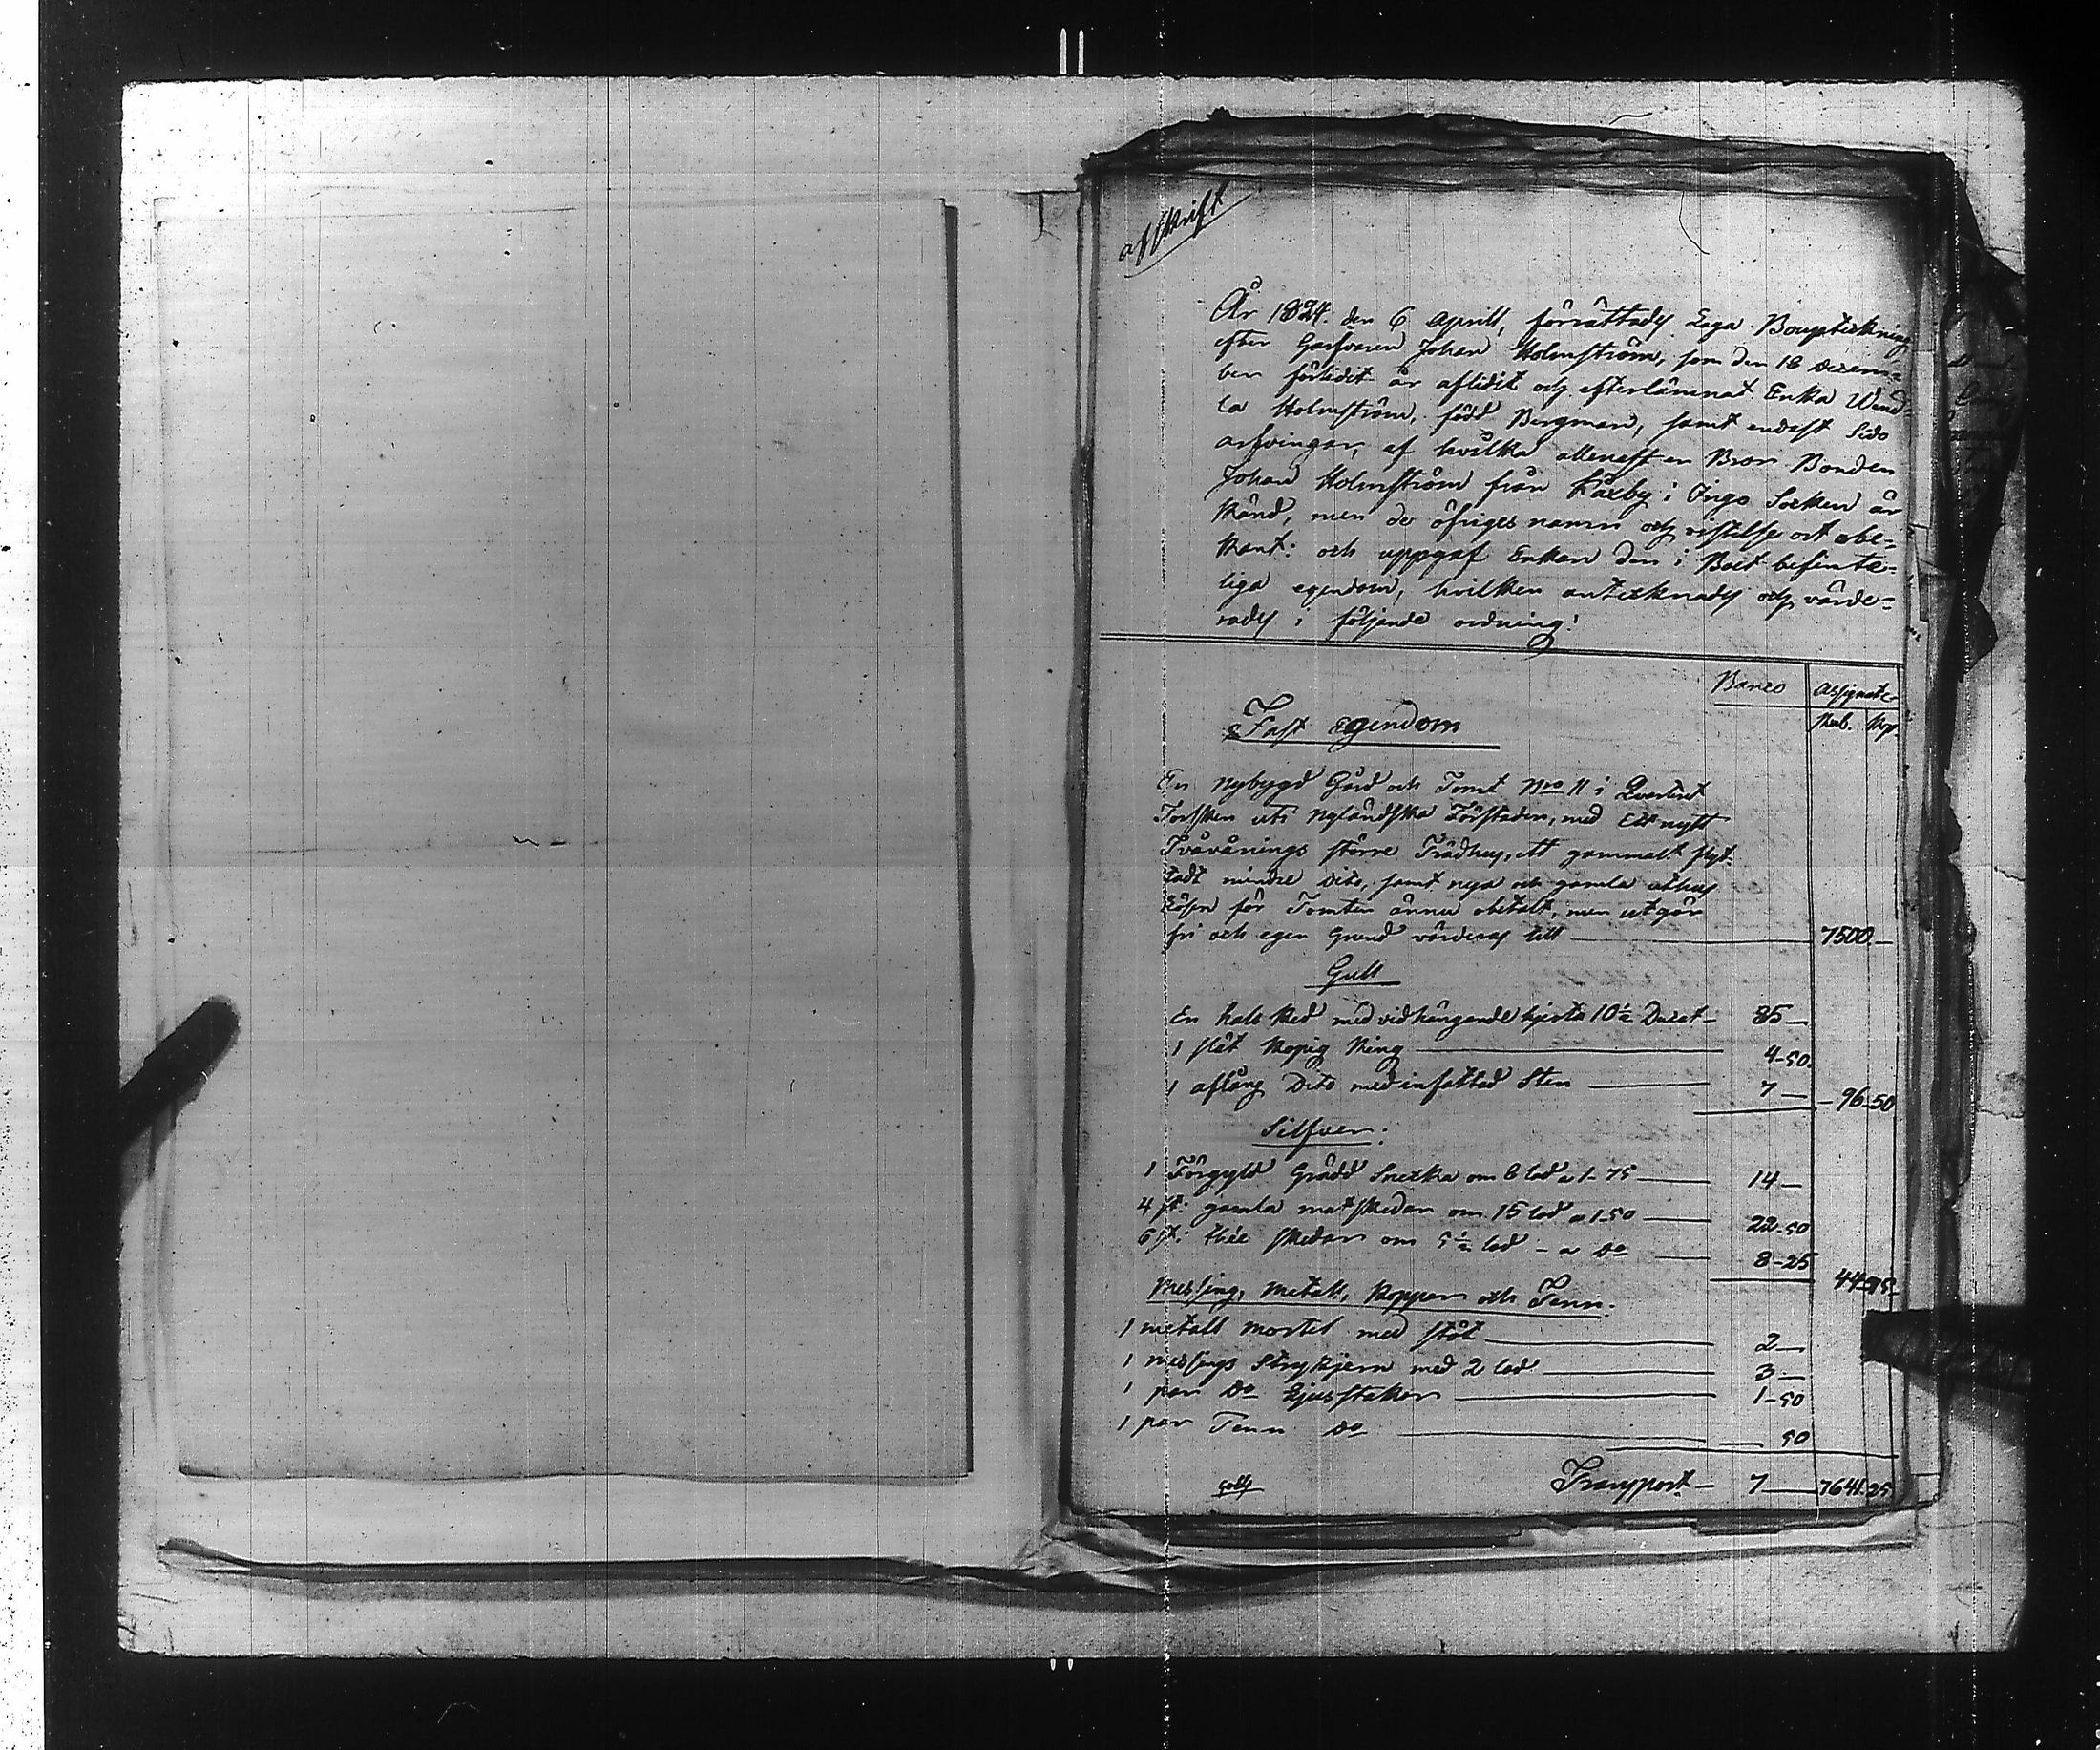 afskrift
År 1824. den 6 Aprill, förrättades Laga Bouptekning
efter Garfvaren Johan Holmström, som den 18 Decem-
ber förlidit år aflidit och efterlämnat Enka Wend-
la Holmström, född Bergman, samt endast Sido
arfvingar, af hvilka allenast en Bror Bonden
Johan Holmström från Båxby i Ingo Socken är
känd, men de öfriges namn och vistelse ort obe-
kant: och uppgaf Enkan den i Boet befinte-
liga egendom, hvilken antecknades och värde-
rades i följande ordning:
Banco Assignate-
Rub. Kop.
Fast egendom
En nybygd Gård och Tomt Nro 11 i Qvarteret
Torsken uti Nyländska Förstaden, med Ett nytt
Tvåvånings större Trädhus, ett gammalt flyt-
tadt mindre Dito, samt nya och gamla uthus
Lösen för Tomten ännu obetalt, men utgör
fri och egen Grund värderas till 7500 —
Gull
En hals ked med vidhängande hjerta 10½ Ducat — 85 —
1 slät kopig Ring 4-50.
1 aflång Dito med infattad Sten 7 — 96-50
Silfver:
1 Förgyld Grädd Snecka om 8 lod a 1-75 14 —
4 st: gamla mat skedar om 15 lod a 1-50 22-50
6 st: thée skedar om 5½ lod - a Do 8-25
44-75
Messing, Metall, Koppar och Tenn.
1 metall mortel med stöt 2 —
1 messings Strykjern med 2 lod 3 —
1 par Do Ljusstakar 1-50
1 par Tenn Do — 50
Transport — 7 — 7641.25